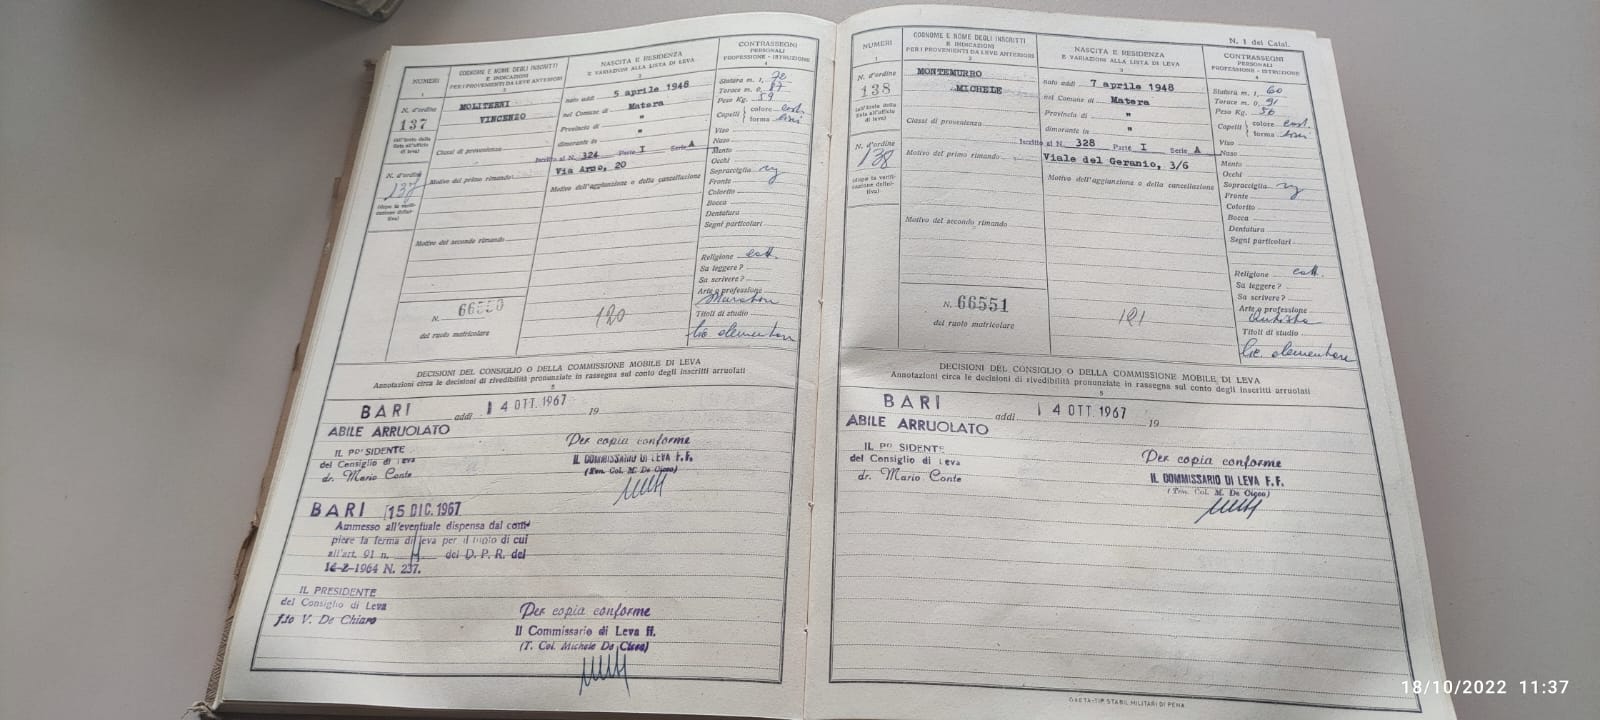 NUMERI
1
COGNOME E NOME DEGLI INSCRITTI
E INDICAZIONI
PER I PROVENIENTI DA LEVE ANTERIORI
2
NASCITA E RESIDENZA
E VARIAZIONI ALLA LISTA DI LEVA
3
CONTRASSEGNI
PERSONALI
PROFESSIONE - ISTRUZIONE
4
N. d'ordine
137
(sull'invio della
lista all'ufficio
di leva)
N. d'ordine
137
(dopo la verifi-
cazione defini-
tiva)
MOLITERNI
VINCENZO
Classi di provenienza
Motivo del primo rimando
Motivo del secondo rimando
N. 66550
del ruolo matricolare
nato addì 5 aprile 1948
nel Comune di Matera
Provincia di "
dimorante in "
Inscritto al N. 324 Parte I Serie A
Via Arno, 20
Motivo dell'aggiunzione o della cancellazione
120
Statura m. 1, 72
Torace m. 0, 87
Peso Kg. 59
Capelli { colore cast.
forma lisci
Viso
Naso
Mento
Occhi
Sopracciglia
Fronte
Colorito
Bocca
Dentatura
Segni particolari
Religione catt.
Sa leggere?
Sa scrivere?
Arte o professione
Muratore
Titoli di studio
lic. elementare
DECISIONI DEL CONSIGLIO O DELLA COMMISSIONE MOBILE DI LEVA
Annotazioni circa le decisioni di rivedibilità pronunziate in rassegna sul conto degli inscritti arruolati
5
BARI addì 14 OTT. 1967 19
ABILE ARRUOLATO
IL PRESIDENTE
del Consiglio di Leva
dr. Mario Conte
Per copia conforme
IL COMMISSARIO DI LEVA F.F.
(Ten. Col. M. De Cicco)
BARI 15 DIC. 1967
Ammesso all'eventuale dispensa dal com-
piere la ferma di leva per il titolo di cui
all'art. 91 n. del D. P. R. del
14-2-1964 N. 237.
IL PRESIDENTE
del Consiglio di Leva
f.to V. De Chiaro
Per copia conforme
Il Commissario di Leva ff.
(T. Col. Michele De Cicco)
N. 1 del Catal.
NUMERI
1
COGNOME E NOME DEGLI INSCRITTI
E INDICAZIONI
PER I PROVENIENTI DA LEVE ANTERIORI
2
NASCITA E RESIDENZA
E VARIAZIONI ALLA LISTA DI LEVA
3
CONTRASSEGNI
PERSONALI
PROFESSIONE - ISTRUZIONE
4
N. d'ordine
138
(sull'invio della
lista all'ufficio
di leva)
N. d'ordine
138
(dopo la verifi-
cazione defini-
tiva)
MONTEMURRO
MICHELE
Classi di provenienza
Motivo del primo rimando
Motivo del secondo rimando
N. 66551
del ruolo matricolare
nato addì 7 aprile 1948
nel Comune di Matera
Provincia di "
dimorante in "
Inscritto al N. 328 Parte I Serie A
Viale del Geranio, 3/6
Motivo dell'aggiunzione o della cancellazione
121
Statura m. 1, 60
Torace m. 0, 91
Peso Kg. 56
Capelli { colore cast.
forma lisci
Viso
Naso
Mento
Occhi
Sopracciglia
Fronte
Colorito
Bocca
Dentatura
Segni particolari
Religione catt.
Sa leggere?
Sa scrivere?
Arte o professione
Autista
Titoli di studio
lic. elementare
DECISIONI DEL CONSIGLIO O DELLA COMMISSIONE MOBILE DI LEVA
Annotazioni circa le decisioni di rivedibilità pronunziate in rassegna sul conto degli inscritti arruolati
5
BARI addì 14 OTT. 1967 19
ABILE ARRUOLATO
IL PRESIDENTE
del Consiglio di Leva
dr. Mario Conte
Per copia conforme
IL COMMISSARIO DI LEVA F.F.
(Ten. Col. M. De Cicco)
GAETA - TIP. STABIL. MILITARI DI PENA
18/10/2022 11:37